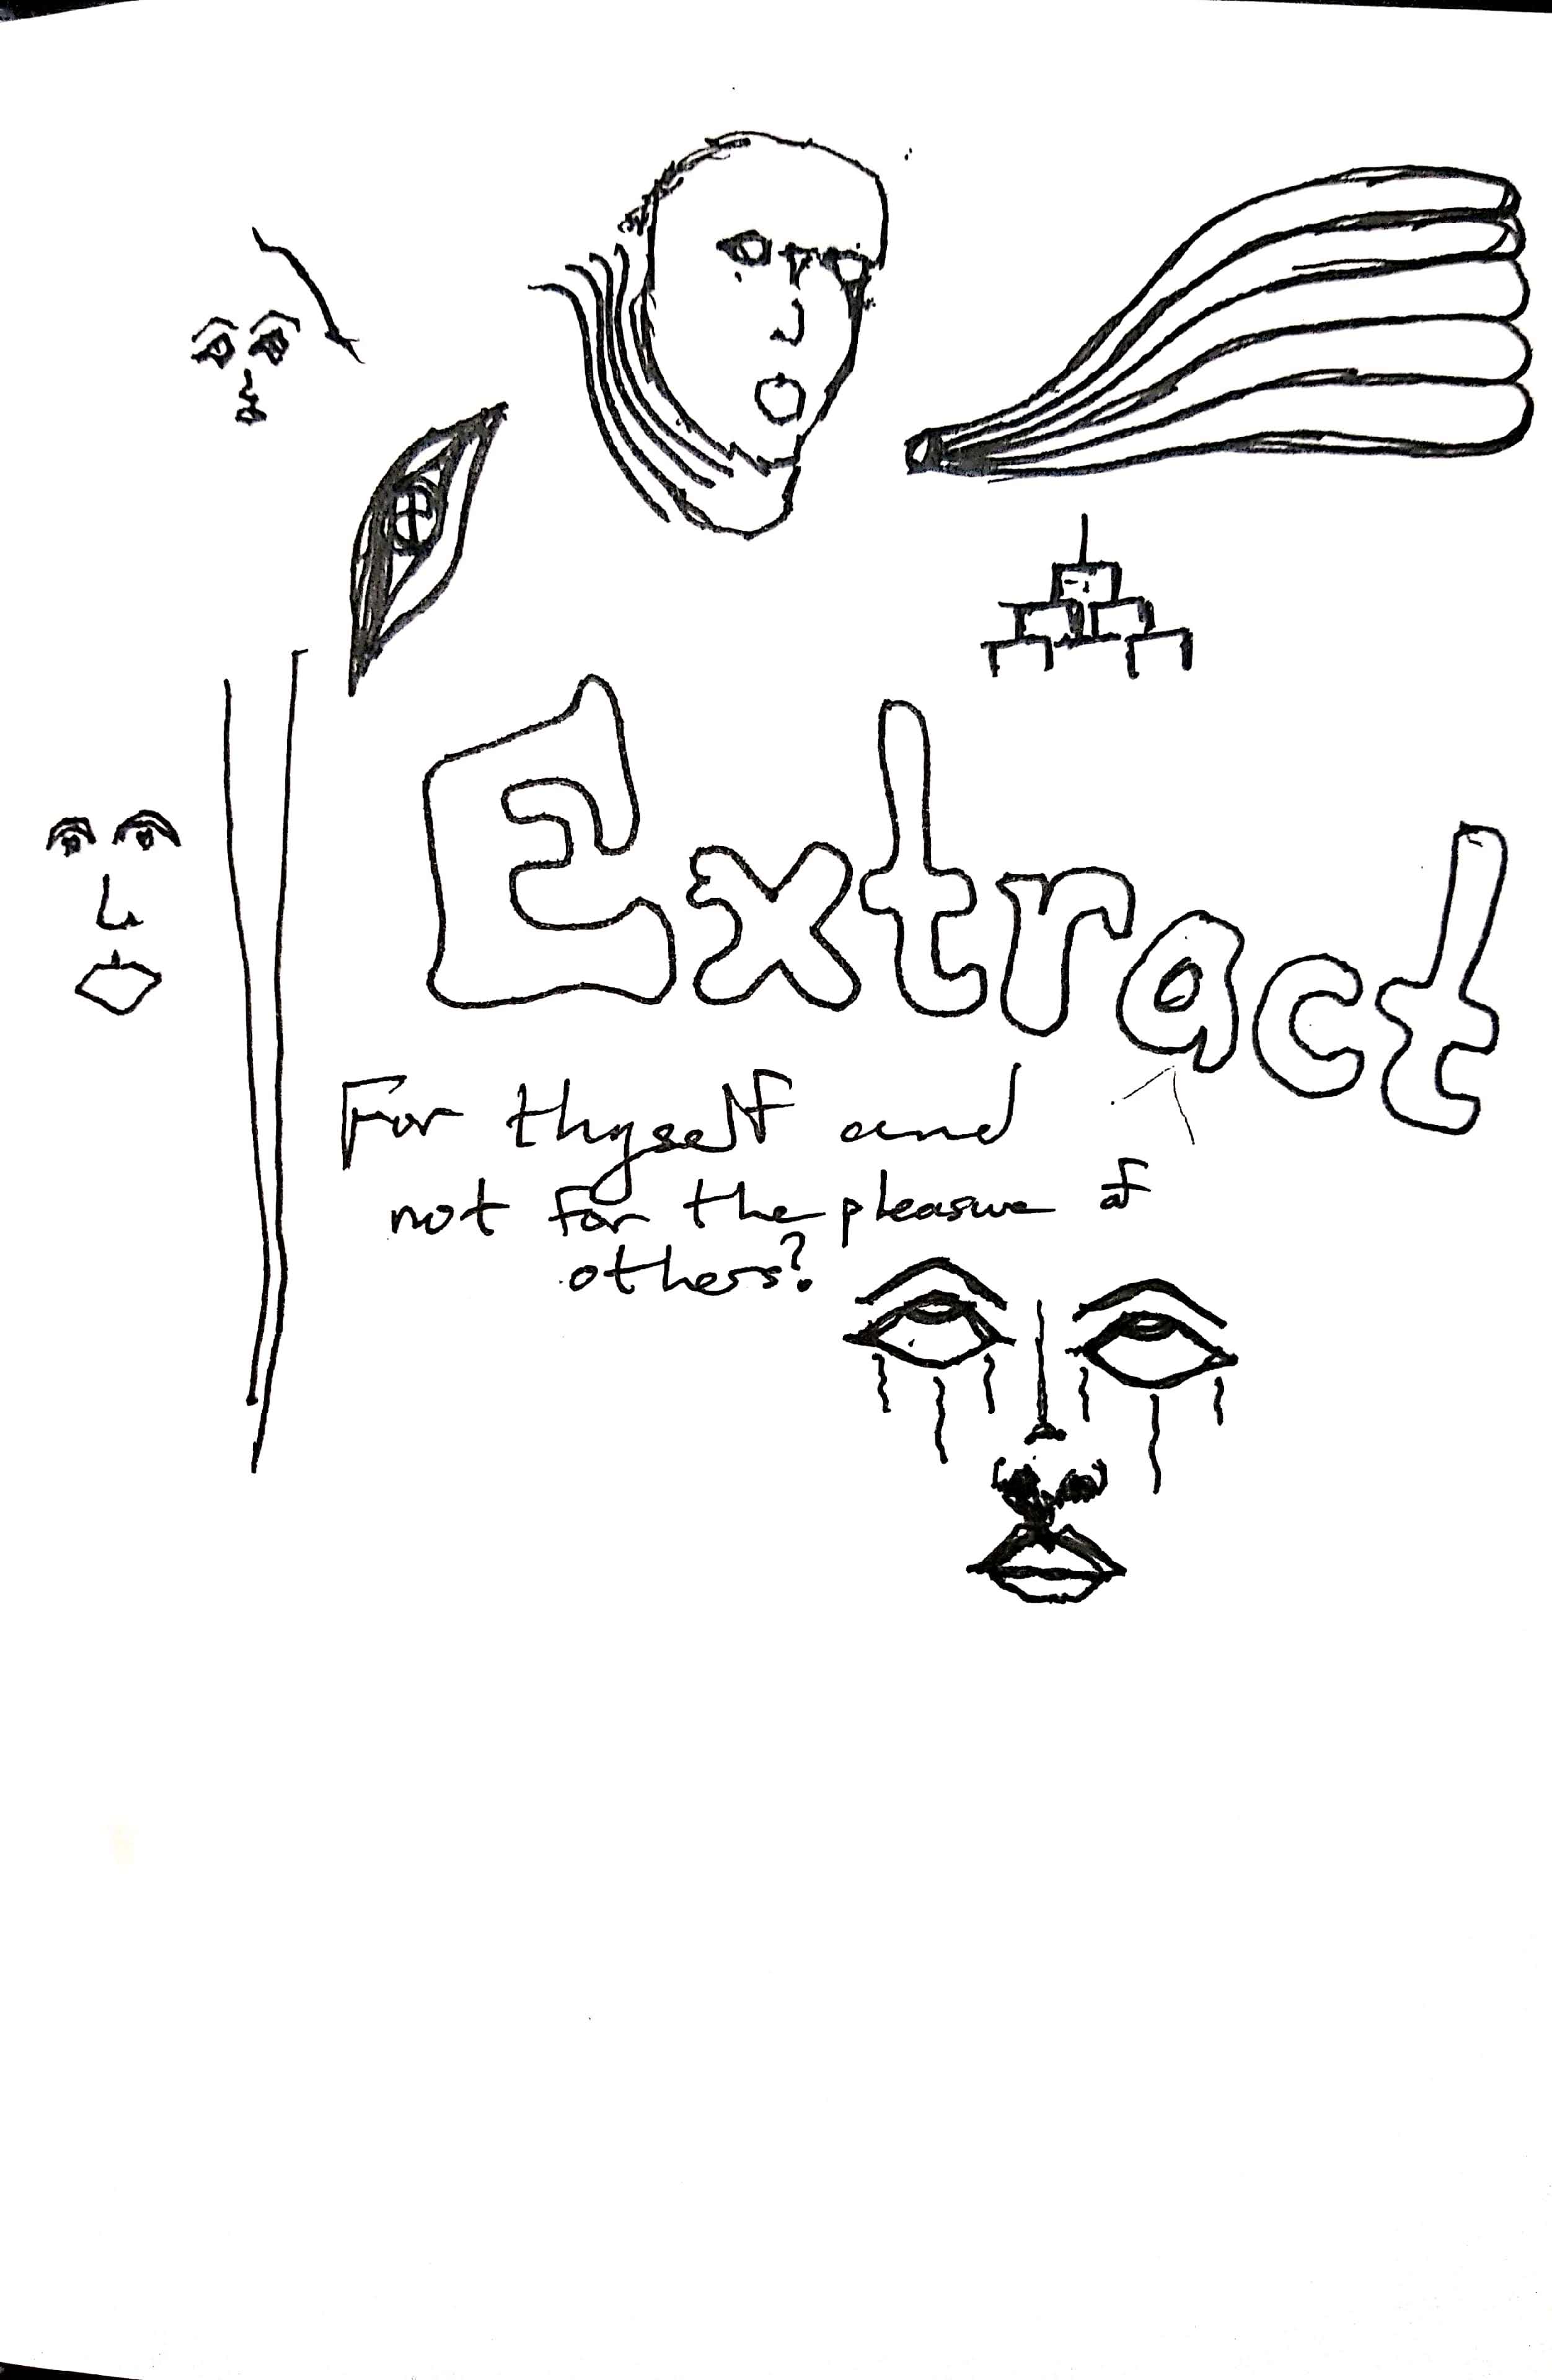 Extract
For thyself and
not for the pleasure of
others?